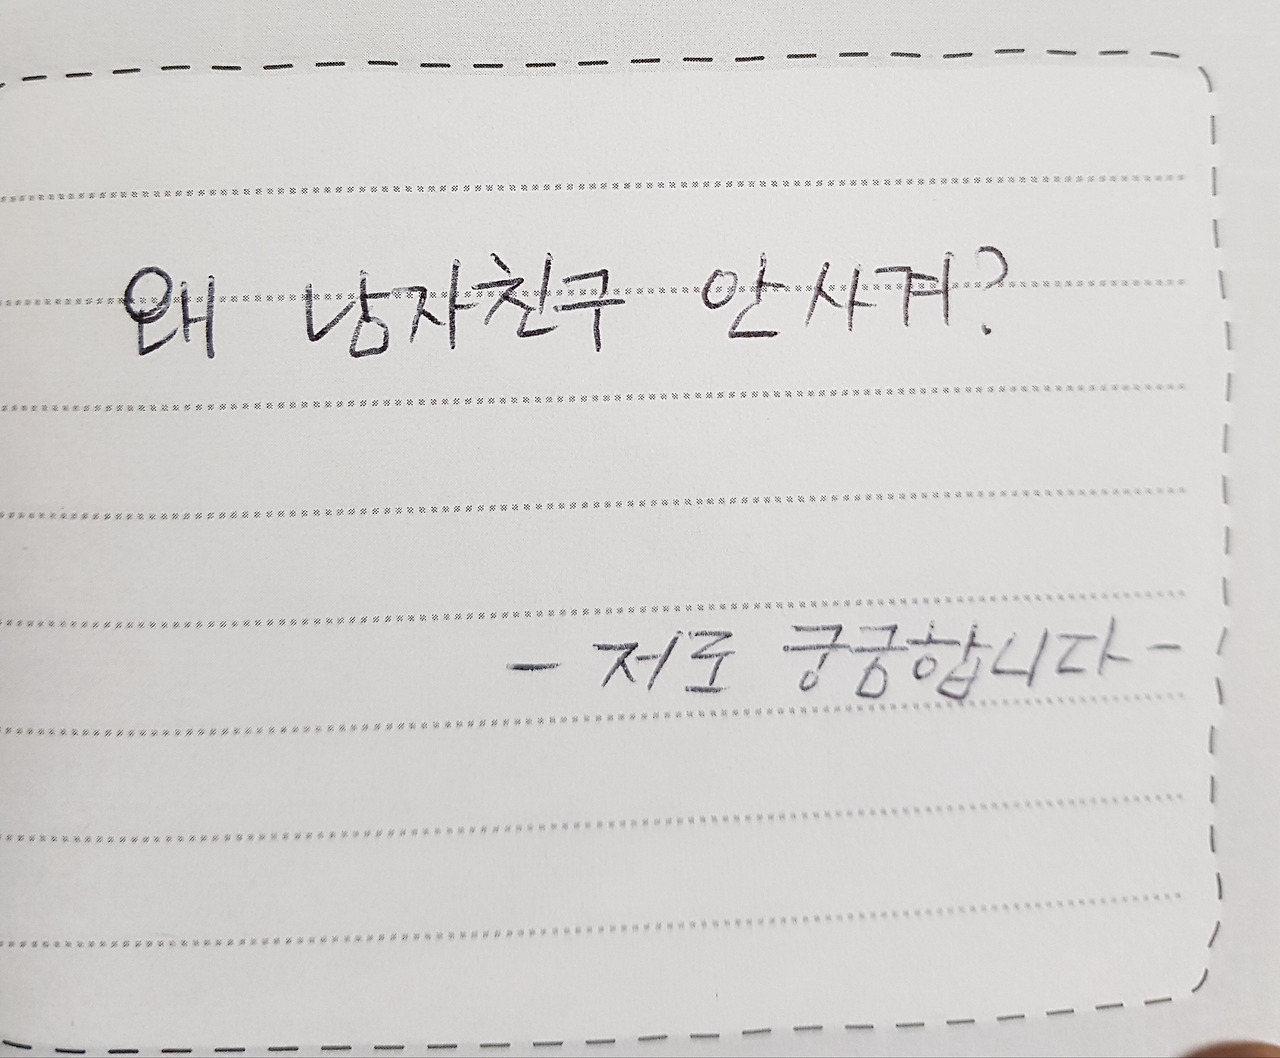 왜 남자친구 안 사겨?
- 저도 궁금합니다 -